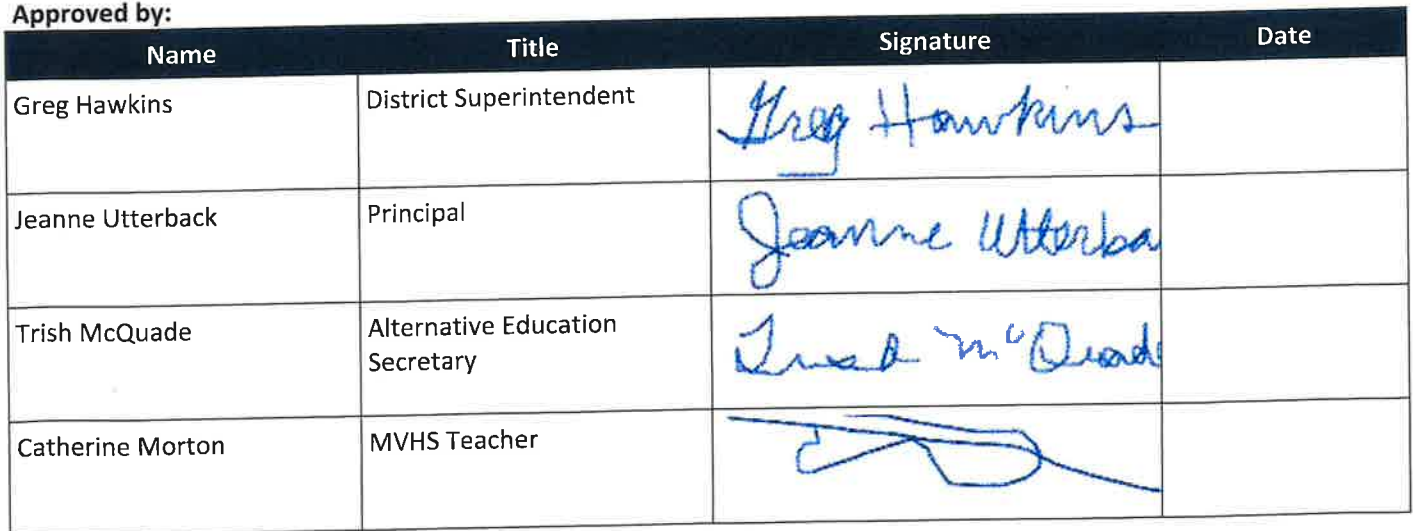 Approved by:
Name Title Signature Date
Greg Hawkins District Superintendent Greg Hawkins
Jeanne Utterback Principal Jeanne Utterba
Trish McQuade Alternative Education
Secretary Trish McQuade
Catherine Morton MVHS Teacher